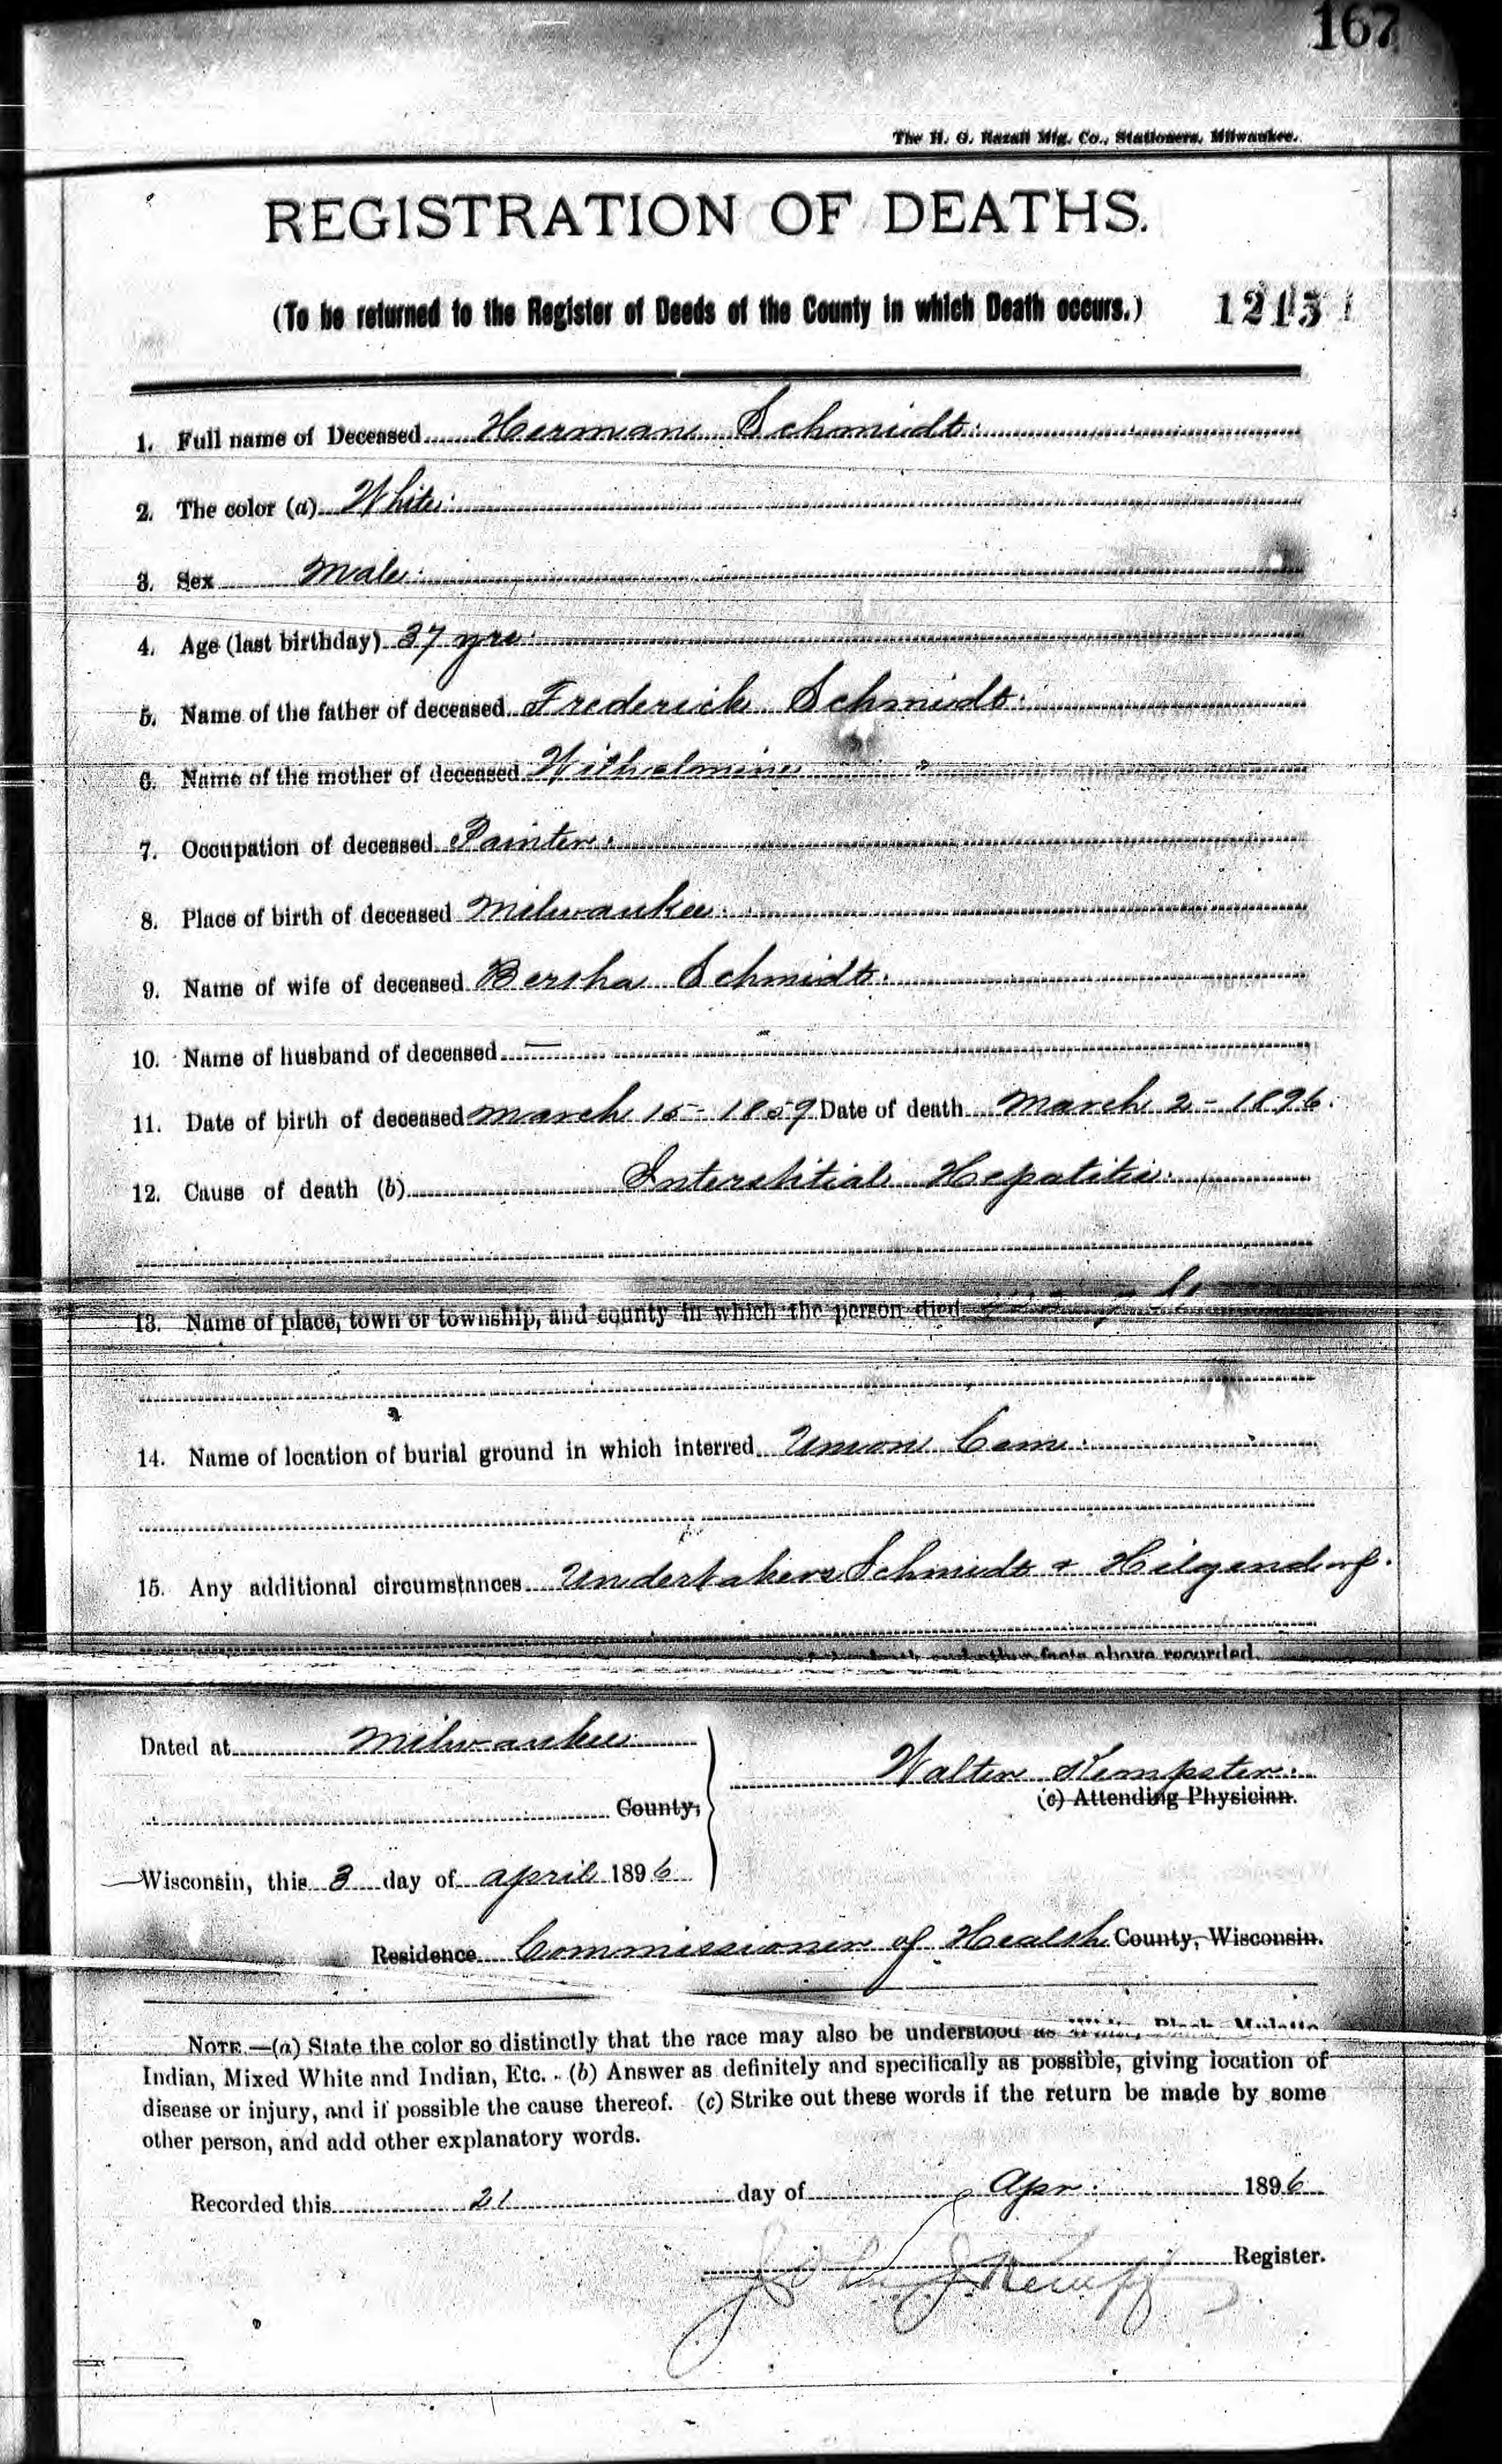 167
The H. G. Razall Mfg. Co., Stationers, Milwaukee.
REGISTRATION OF DEATHS.
(To be returned to the Register of Deeds of the County in which Death occurs.)
1. Full name of Deceased Hermann Schmidt.
2. The color (a) White.
3. Sex Male.
4. Age (last birthday) 37 yrs.
5. Name of the father of deceased Frederick Schmidt.
6. Name of the mother of deceased Wilhelmine
7. Occupation of deceased Painter.
8. Place of birth of deceased Milwaukee.
9. Name of wife of deceased Bertha Schmidt.
10. Name of husband of deceased —
11. Date of birth of deceased March 15 - 1859 Date of death March 2 - 1896.
12. Cause of death (b) Interstitial Hepatitis.
13. Name of place, town or township, and county in which the person died
14. Name of location of burial ground in which interred Union Cem.
15. Any additional circumstances Undertakers Schmidt + Hilgendorf.
facts above recorded.
Dated at Milwaukee
Walter Kempster.
(c) Attending Physician.
County,
Wisconsin, this 3 day of April 1896
Residence Commissioner of Health County, Wisconsin.
NOTE.—(a) State the color so distinctly that the race may also be understood as White, Black, Mulatto,
Indian, Mixed White and Indian, Etc. (b) Answer as definitely and specifically as possible, giving location of
disease or injury, and if possible the cause thereof. (c) Strike out these words if the return be made by some
other person, and add other explanatory words.
Recorded this 21 day of Apr. 1896
Register.